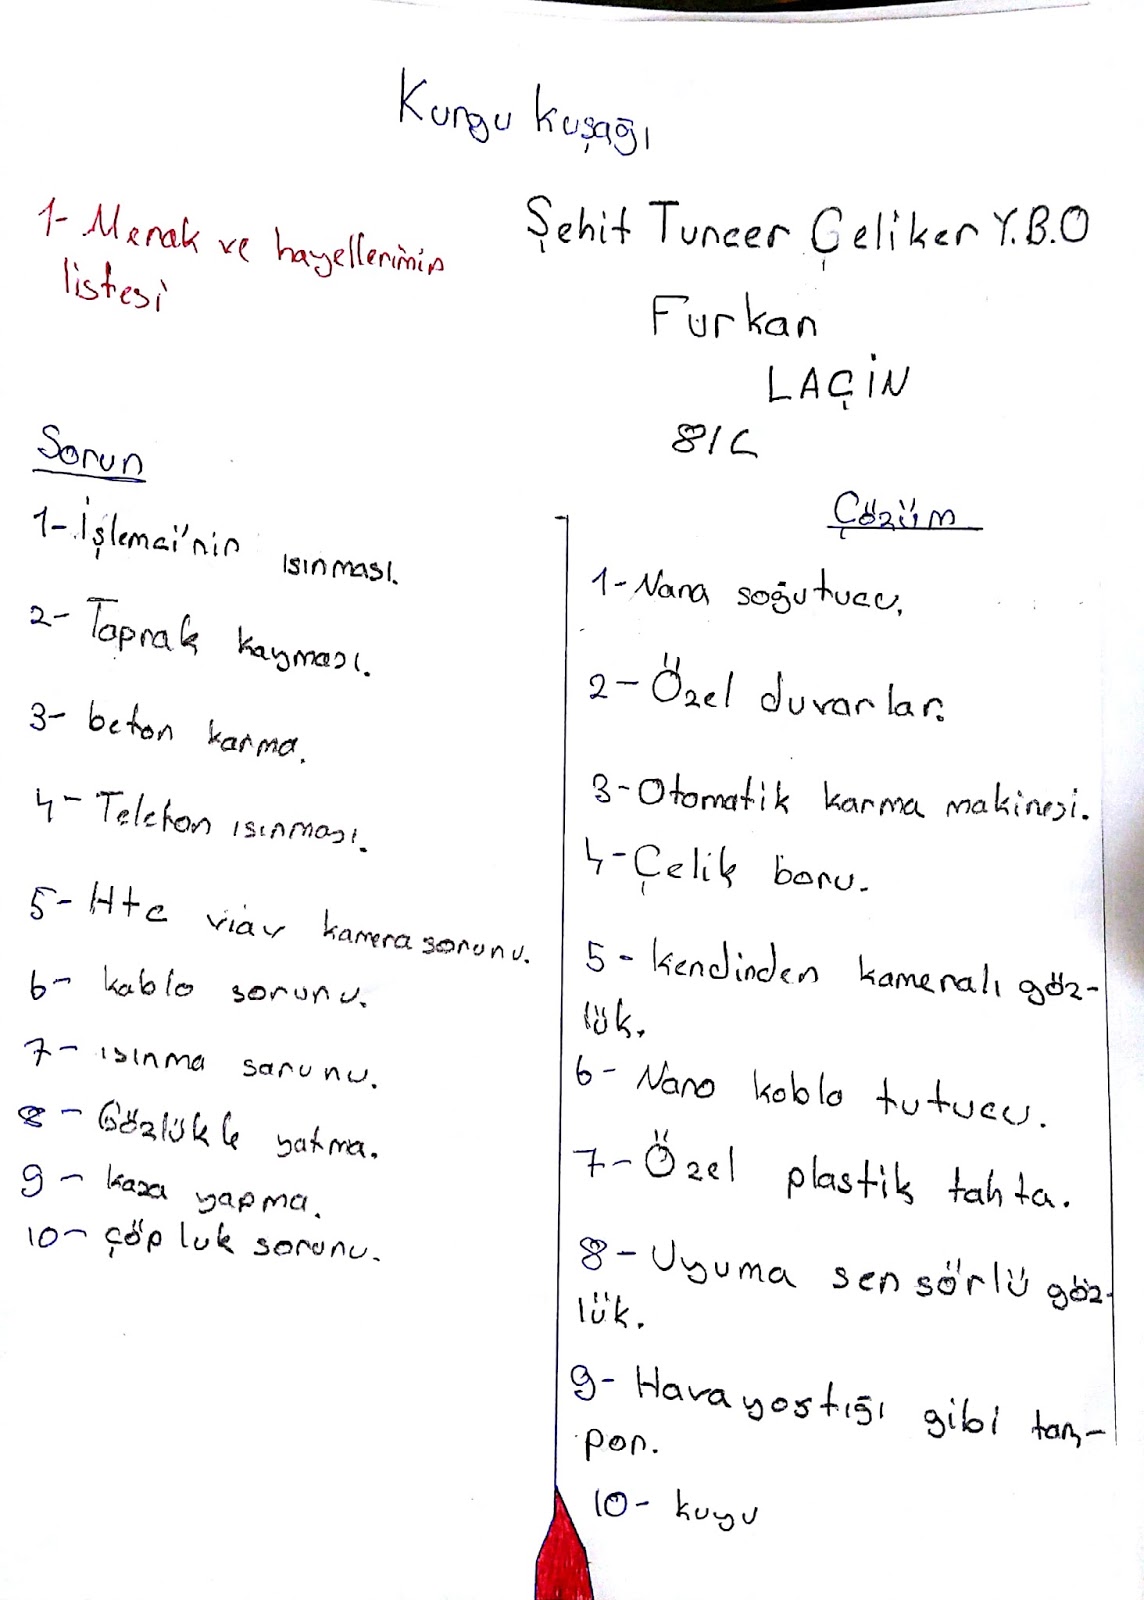 Kurgu kuşağı
1- Merak ve hayellerimin
listesi
Şehit Tuncer Çeliker Y.B.O
Furkan
LAÇİN
8/C
Sorun
1- İşlemci'nin ısınması.
2- Toprak kayması.
3- beton karma.
4- Telefon ısınması.
5- Htc viav kamera sorunu.
6- kablo sorunu.
7- ısınma sorunu.
8- Gözlükle yatma.
9- kaza yapma.
10- çöp luk sorunu.
Çözüm
1- Nana soğutucu.
2- Özel duvarlar.
3- Otomatik karma makinesi.
4- Çelik boru.
5- kendinden kameralı göz-
lük.
6- Nano kablo tutucu.
7- Özel plastik tahta.
8- Uyuma sensörlü göz-
lük.
9- Hava yostığı gibi tam-
pon.
10- kuyu